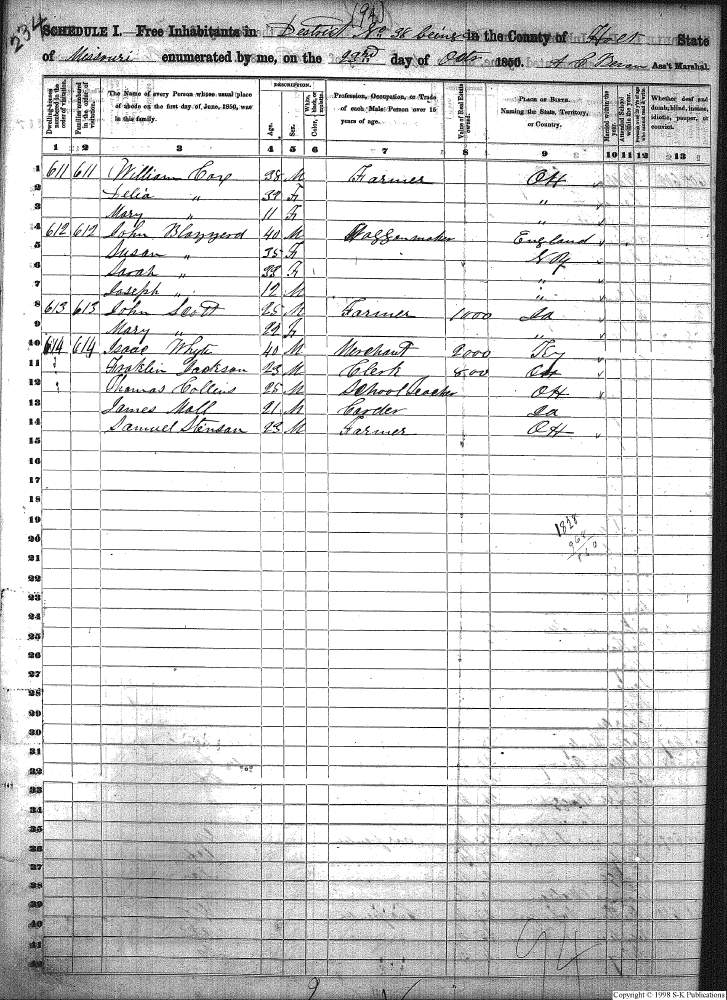 234
(94)
SCHEDULE I.—Free Inhabitants in District No 38 being in the County of Holt State
of Missouri enumerated by me, on the 23rd day of Octo 1850. Ass't Marshal.
Dwelling-houses numbered in the order of visitation.
Families numbered in the order of visitation.
The Name of every Person whose usual place of abode on the first day of June, 1850, was in this family.
DESCRIPTION.
Age.
Sex.
Color, White, black, or mulatto.
Profession, Occupation, or Trade of each Male Person over 15 years of age.
Value of Real Estate owned.
PLACE OF BIRTH. Naming the State, Territory, or Country.
Married within the year.
Attended School within the year.
Whether deaf and dumb, blind, insane, idiotic, pauper, or convict.
1 2 3 4 5 6 7 8 9 10 11 12 13
1 611 611 William Cox 38 M Farmer OH
2 Delia " 39 F "
3 Mary " 11 F "
4 612 612 John Blazzerd 40 M Waggonmaker England
5 Susan " 35 F N Y
6 Sarah " 33 F "
7 Joseph " 12 M "
8 613 613 John Scott 25 M Farmer 1000 Ia
9 Mary " 22 F "
10 614 614 Isaac Whyte 40 M Merchant 2000 Ky
11 Franklin Jackson 23 M Clerk 800 OH
12 Thomas Collins 25 M School Teacher OH
13 James Moll 21 M Carder Ia
14 Samuel Stenson 23 M Farmer OH
15
16
17
18
19
20 1828
21 968
22 860
23
24
25
26
27
28
29
30
31
32
33
34
35
36
37
38
39
40
41
42
94
9
Copyright © 1998 S-K Publications